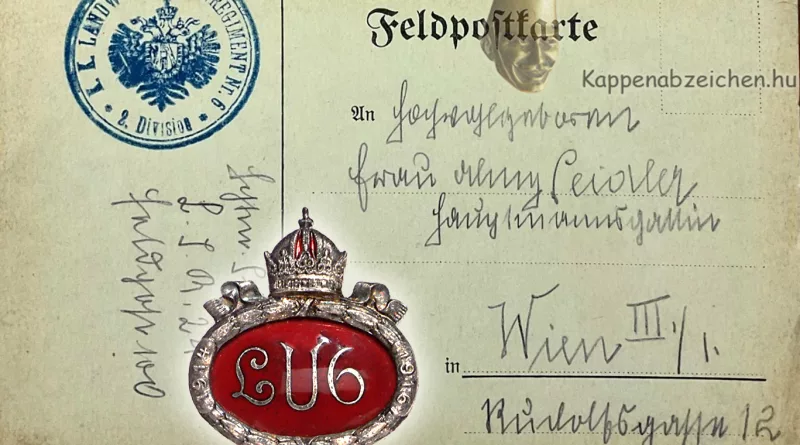 K. K. LANDW REGIMENT Nr. 6
* 2. Division *
Feldpostkarte
Kappenabzeichen.hu
An Hochwohlgeboren
Frau Almy Seidler
Hauptmannsgattin
in Wien III/1.
Rudolfsgasse 12
Feldpost
1914 LU6 1916